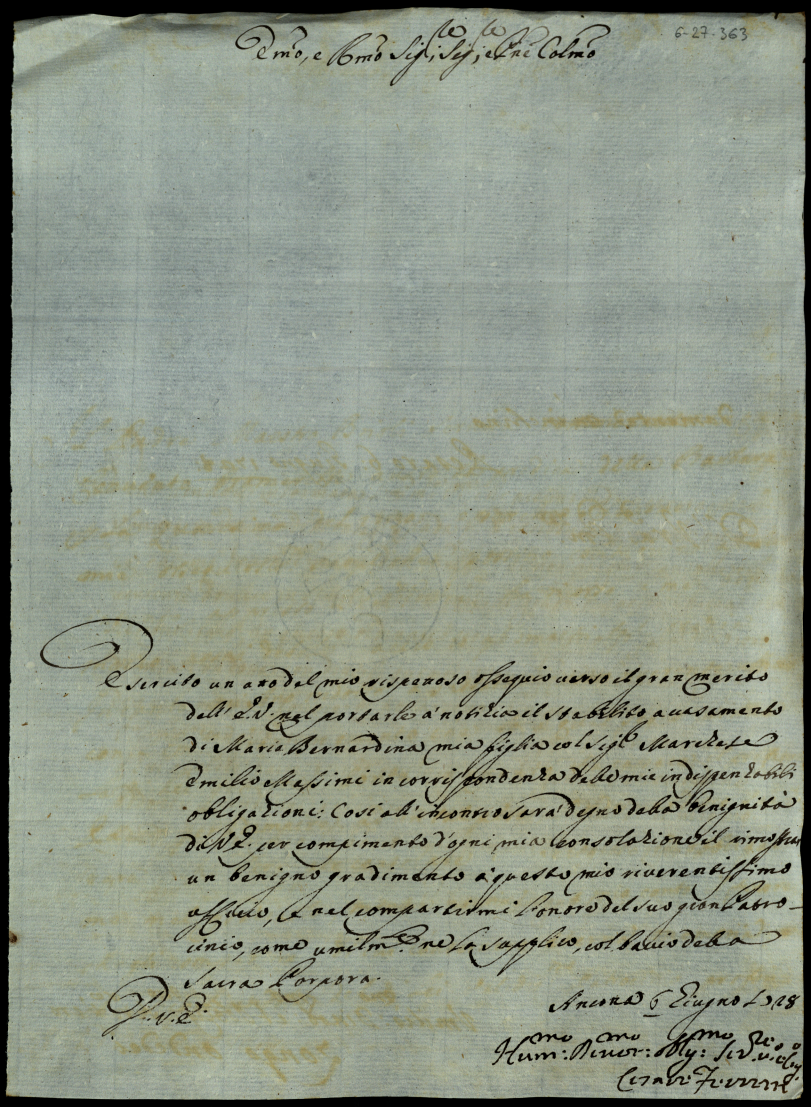 6-27-363
Emo, e Rmo Sigre, Sigre, e Pne Colmo
Esercito un atto del mio rispettoso ossequio verso il gran merito
dell' E.V. nel portarle a' notitia il stabilito accasamento
di Maria Bernardina mia figlia col Sigr Marchese
Emilio Massimi in corrispondenza delle mie indispenzabili
obligazioni; Cosi all' incontro sarà degno della benignità
di V.E. per compimento d'ogni mia consolazione il rimostrar
un benigno gradimento a questo mio riverentissimo
officio, e nel compartirmi l'onore del suo gran Patro-
cinio, come umilme ne la supplico, col bacio della
Sacra Porpora.
D. V. E.
Ancona 6 Giugno 1728
Hummo: Devotmo: oblygmo: Serre